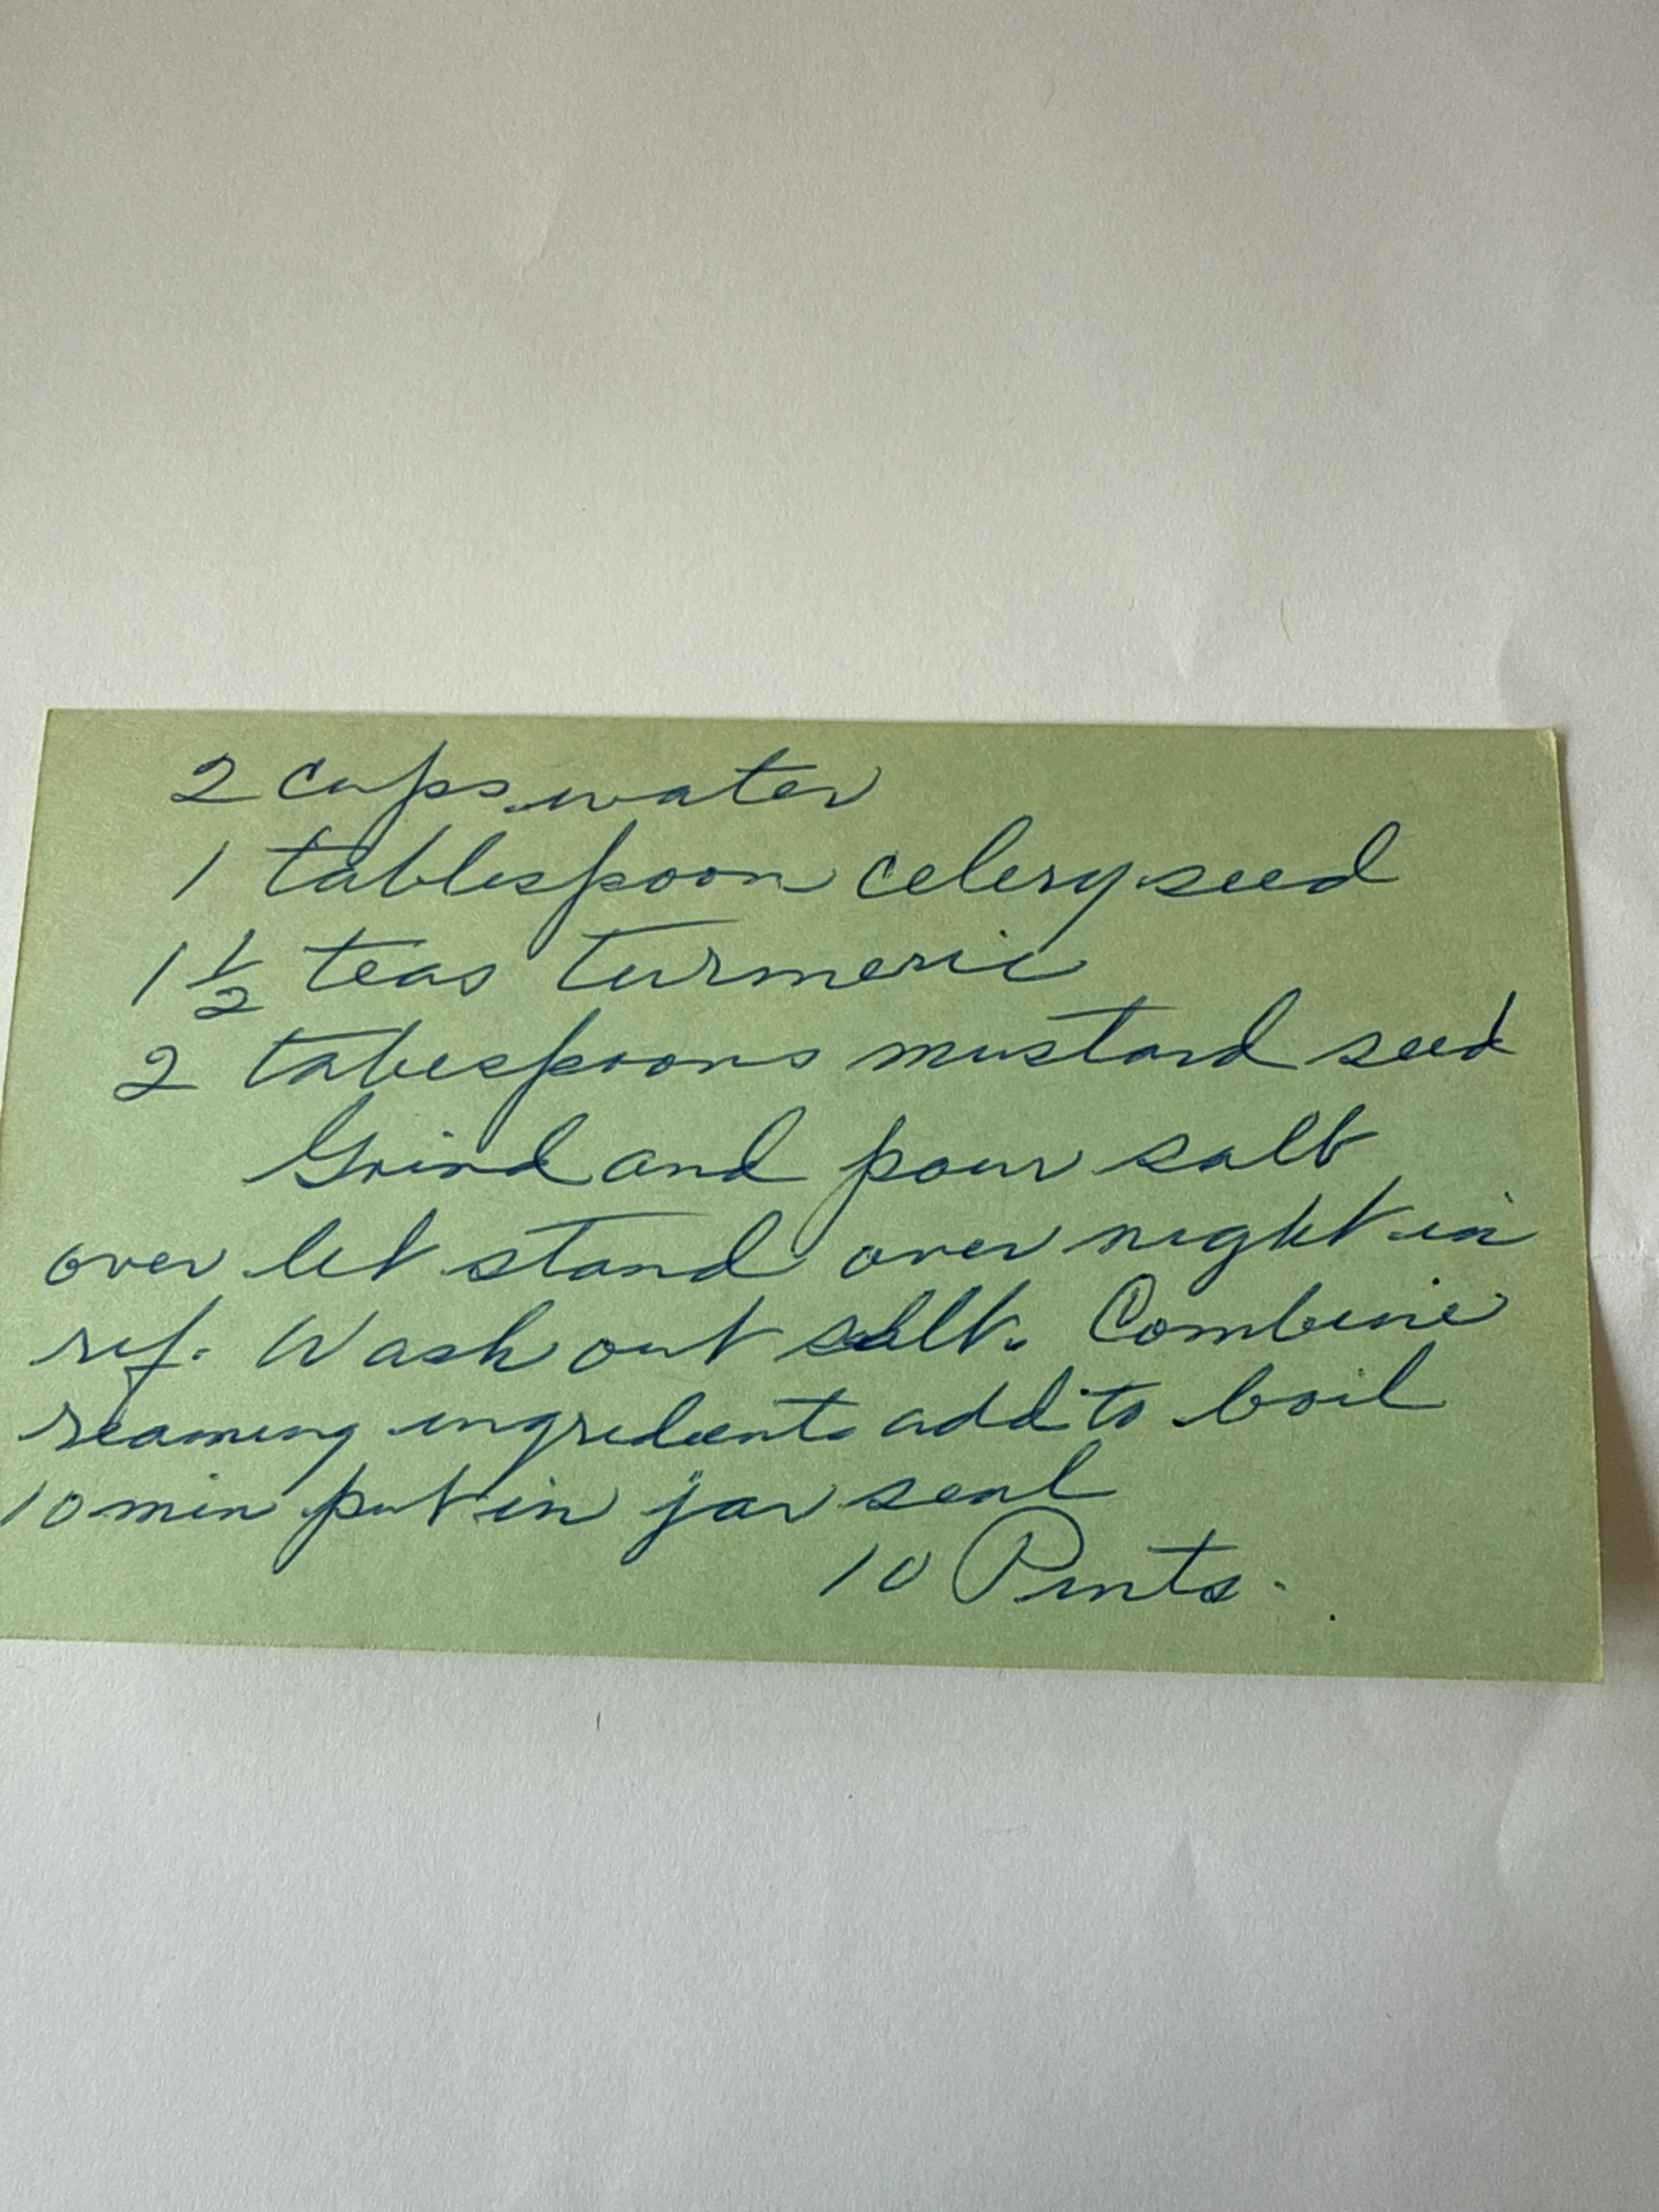 2 cups water
1 tablespoon celery seed
1 1/2 teas turmeric
2 tabespoons mustard seed
Grind and pour salt
over let stand over night in
ref. Wash out salt. Combine
reaming ingredients add to boil
10 min put in jar seal
10 Pints.